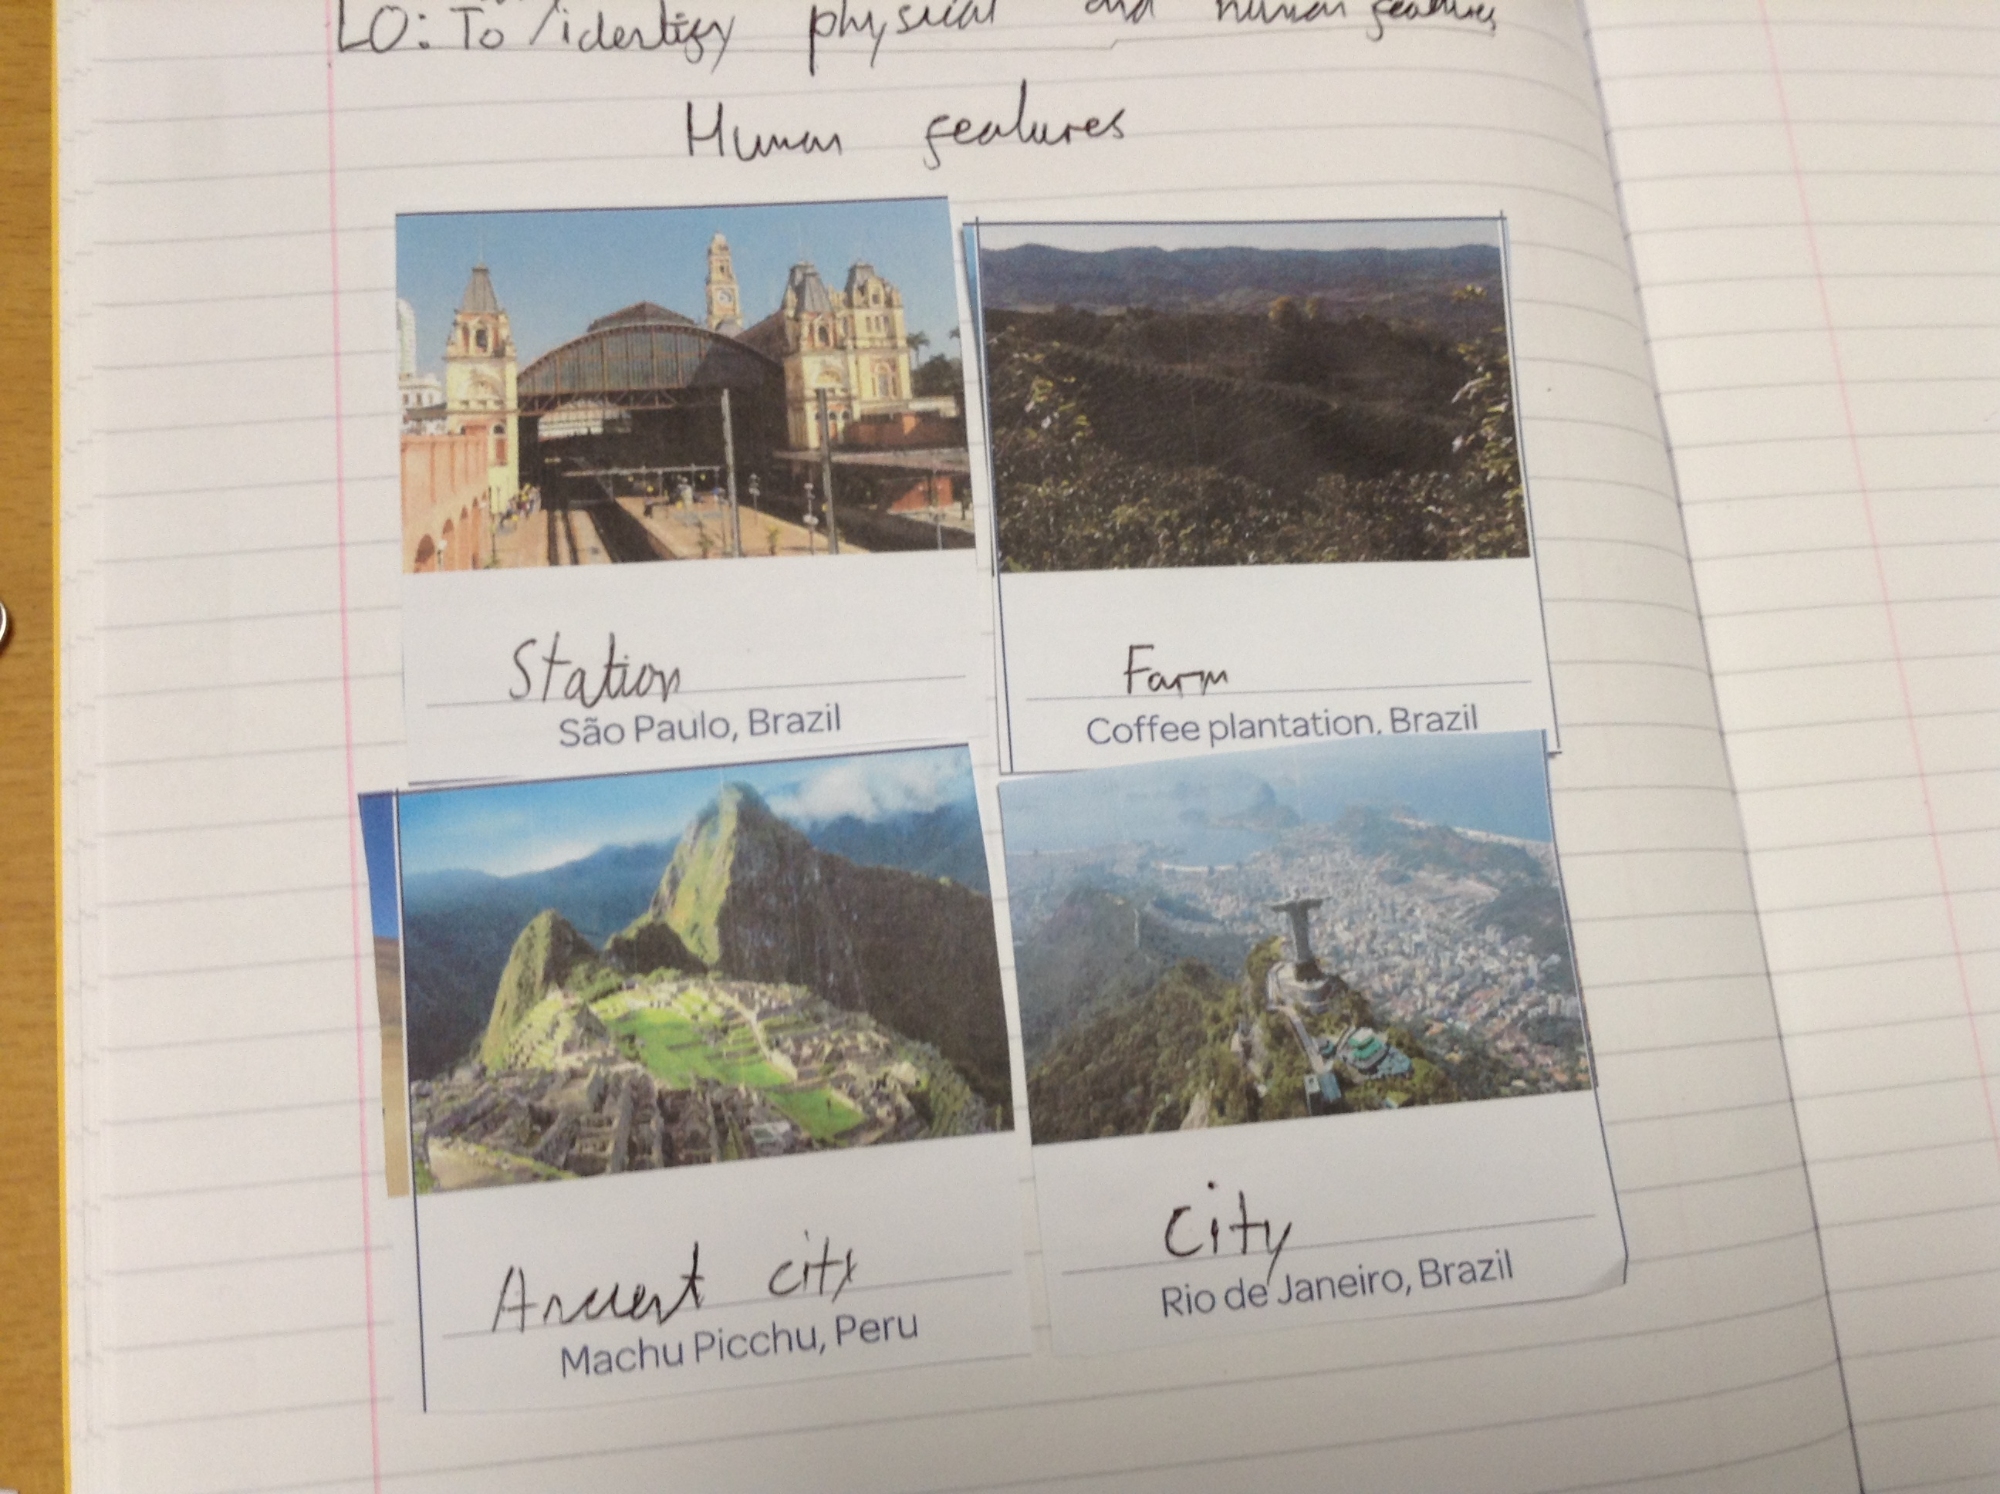 LO: To identify physical and human features
Human features
Station
São Paulo, Brazil
Farm
Coffee plantation. Brazil
Ancient city
Machu Picchu, Peru
City
Rio de Janeiro, Brazil